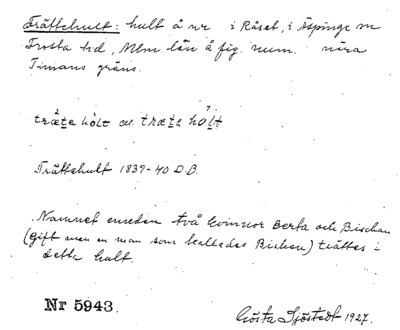 Trättehult: hult å nr i Råset, i Äspinge sn
Frosta hd, Mlm. län å fig. num. nära
Timans gräns.
træte hòlt el. træte holt
Trättehult 1839-40 D.B.
Namnet emedan två kvinnor Berta och Bischan
(gift men en man som kallades Bischen) trättes i
detta hult.
Nr 5943.
Gösta Sjöstedt 1927.